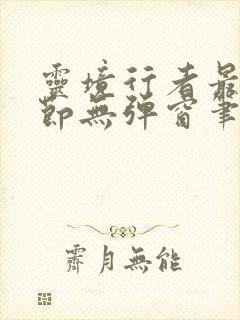 靈境行者最
節無彈窗筆
霽月無能